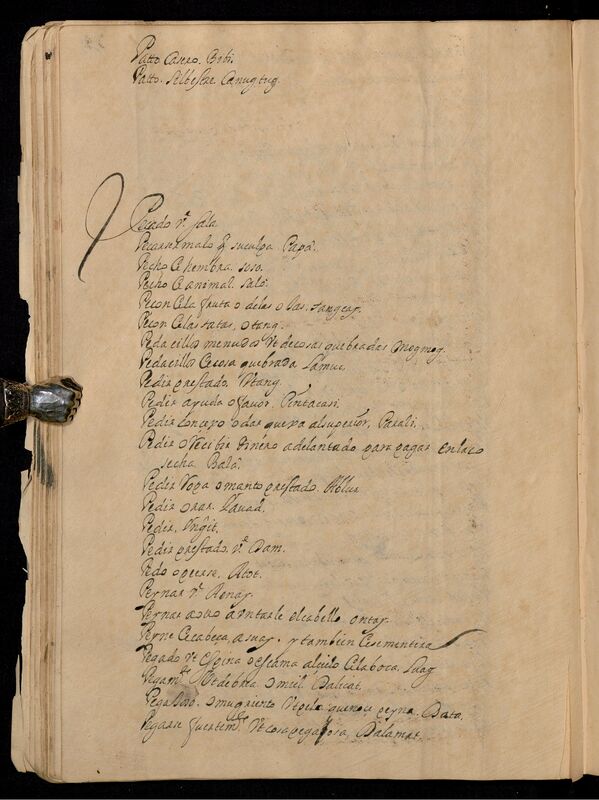 Patto Casero. Bibi.
Patto. Silbestre Canugtug
Pecado vᵉ. sala
Pecar su culpa. Papa.
Pecho de hembra. soso.
Pecho de animal. Salo.
Peçon de la fruta o de las o las. tangcay.
Peçon de las tatas, otong.
Pedacillos menudos Vt de cosas quebradas Mogmog.
Pedacillos de cosa quebrada Lamuc.
Pedir prestado. Vtang.
Pedir ayuda o favor. Pintacasi.
Pedir o dar quexa al superior, Parali.
Pedir o recibir dinero adelantado para pagar en la co
secha. Bala.
Pedir Ropa o manto prestado. Ablus
Pedir orar. Lauad.
Pedir. Vngit.
Pedir prestado. vᵉ Dam.
Pedo o peerse. Atot.
Peynar vᵉ Aenay.
Peynar o untarle el cabello ontay.
Peyne de cabeca, asuay. y tambien de sementera
Pegado Vt espina o escama al cielo de la boca. Saag
Pegamᵗᵒ Vt de brea o miel. Dalicat.
Pegajoso. o mugriento Vt pelo que no se peyna. Data.
Pegarse fuertemᵗᵉ Vt cosa pegajosa, Dalamat.